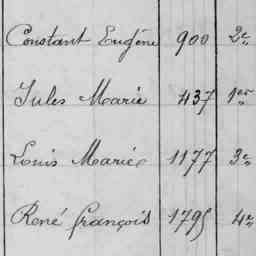 Constant Eugène 900 2e
Jules Marie 437 1er
Louis Marie 1177 3e
René François 1795 4e